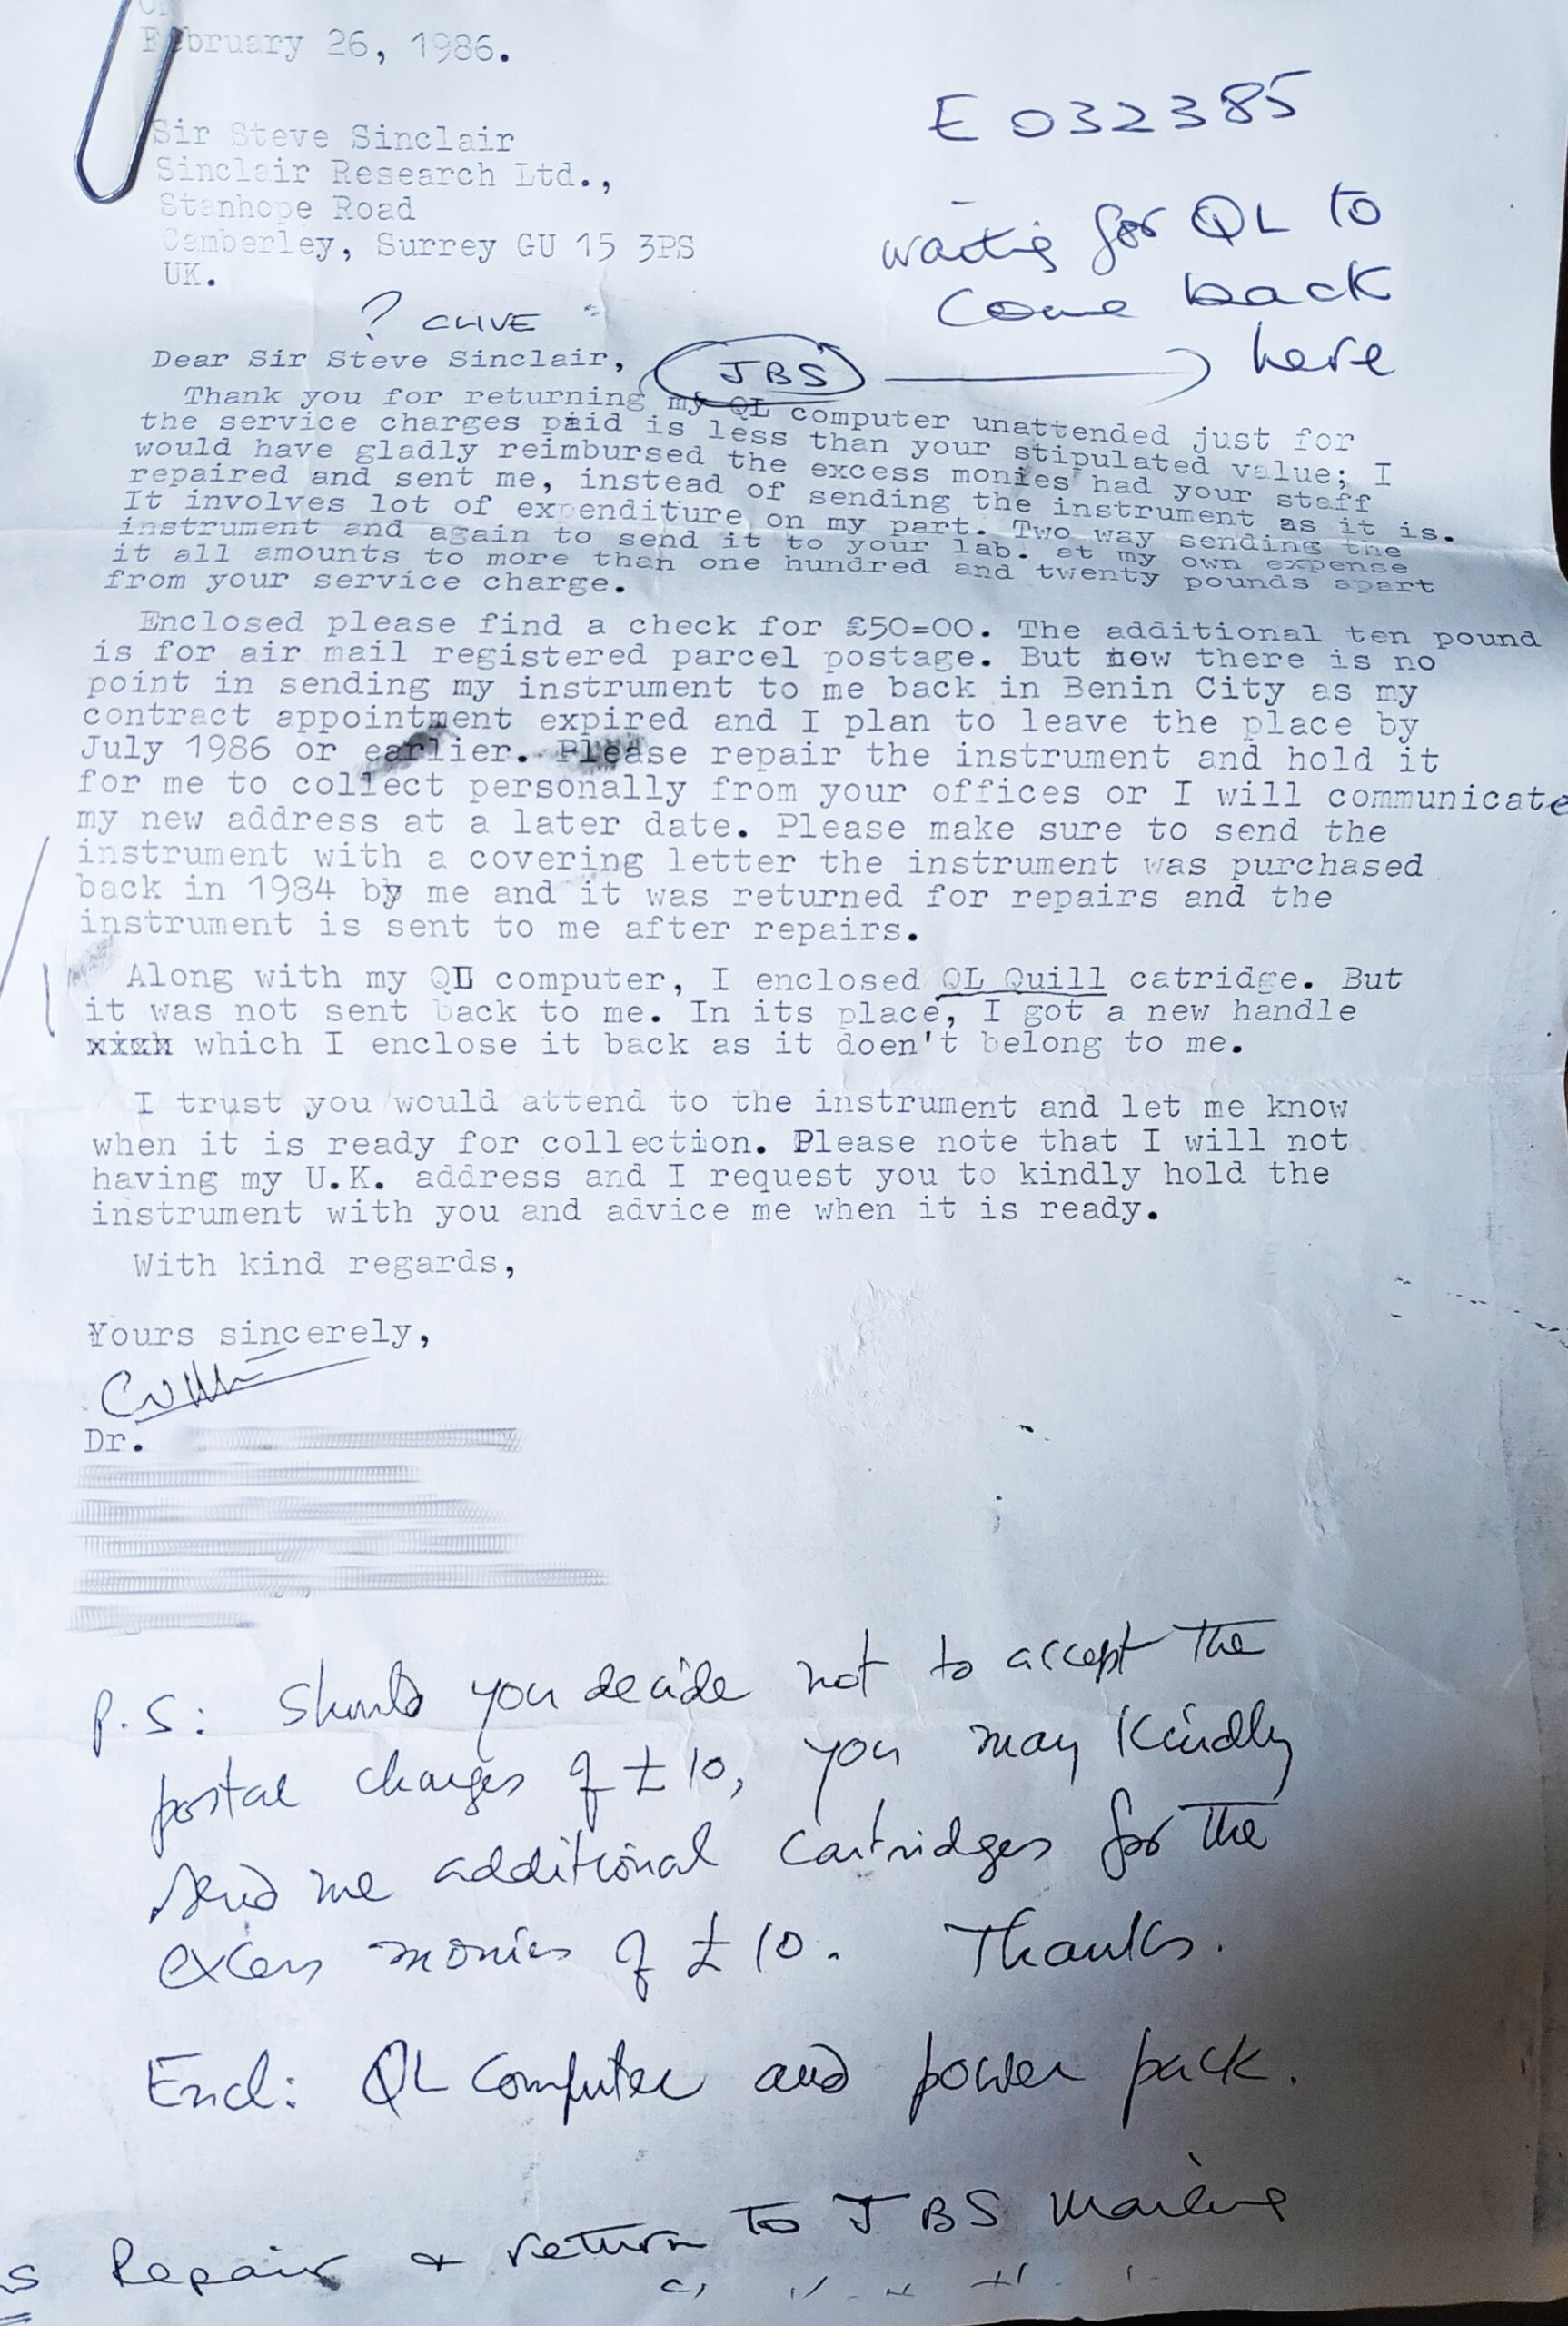 February 26, 1986.
E 032385
Sir Steve Sinclair
Sinclair Research Ltd.,
Stanhope Road
Camberley, Surrey GU 15 3PS
UK.
waiting for QL to
come back
here
? CLIVE
Dear Sir Steve Sinclair,
JBS
Thank you for returning my QL computer unattended just for
the service charges paid is less than your stipulated value; I
would have gladly reimbursed the excess monies had your staff
repaired and sent me, instead of sending the instrument as it is.
It involves lot of expenditure on my part. Two way sending the
instrument and again to send it to your lab. at my own expense
it all amounts to more than one hundred and twenty pounds apart
from your service charge.
Enclosed please find a check for £50=00. The additional ten pound
is for air mail registered parcel postage. But now there is no
point in sending my instrument to me back in Benin City as my
contract appointment expired and I plan to leave the place by
July 1986 or earlier. Please repair the instrument and hold it
for me to collect personally from your offices or I will communicate
my new address at a later date. Please make sure to send the
instrument with a covering letter the instrument was purchased
back in 1984 by me and it was returned for repairs and the
instrument is sent to me after repairs.
Along with my QL computer, I enclosed QL Quill catridge. But
it was not sent back to me. In its place, I got a new handle
which I enclose it back as it doen't belong to me.
I trust you would attend to the instrument and let me know
when it is ready for collection. Please note that I will not
having my U.K. address and I request you to kindly hold the
instrument with you and advice me when it is ready.
With kind regards,
Yours sincerely,
Dr.
P.S: Should you decide not to accept the
postal charges of £10, you may kindly
send me additional cartridges for the
excess monies of £10. Thanks.
Encl: QL Computer and power pack.
Repair & return to JBS